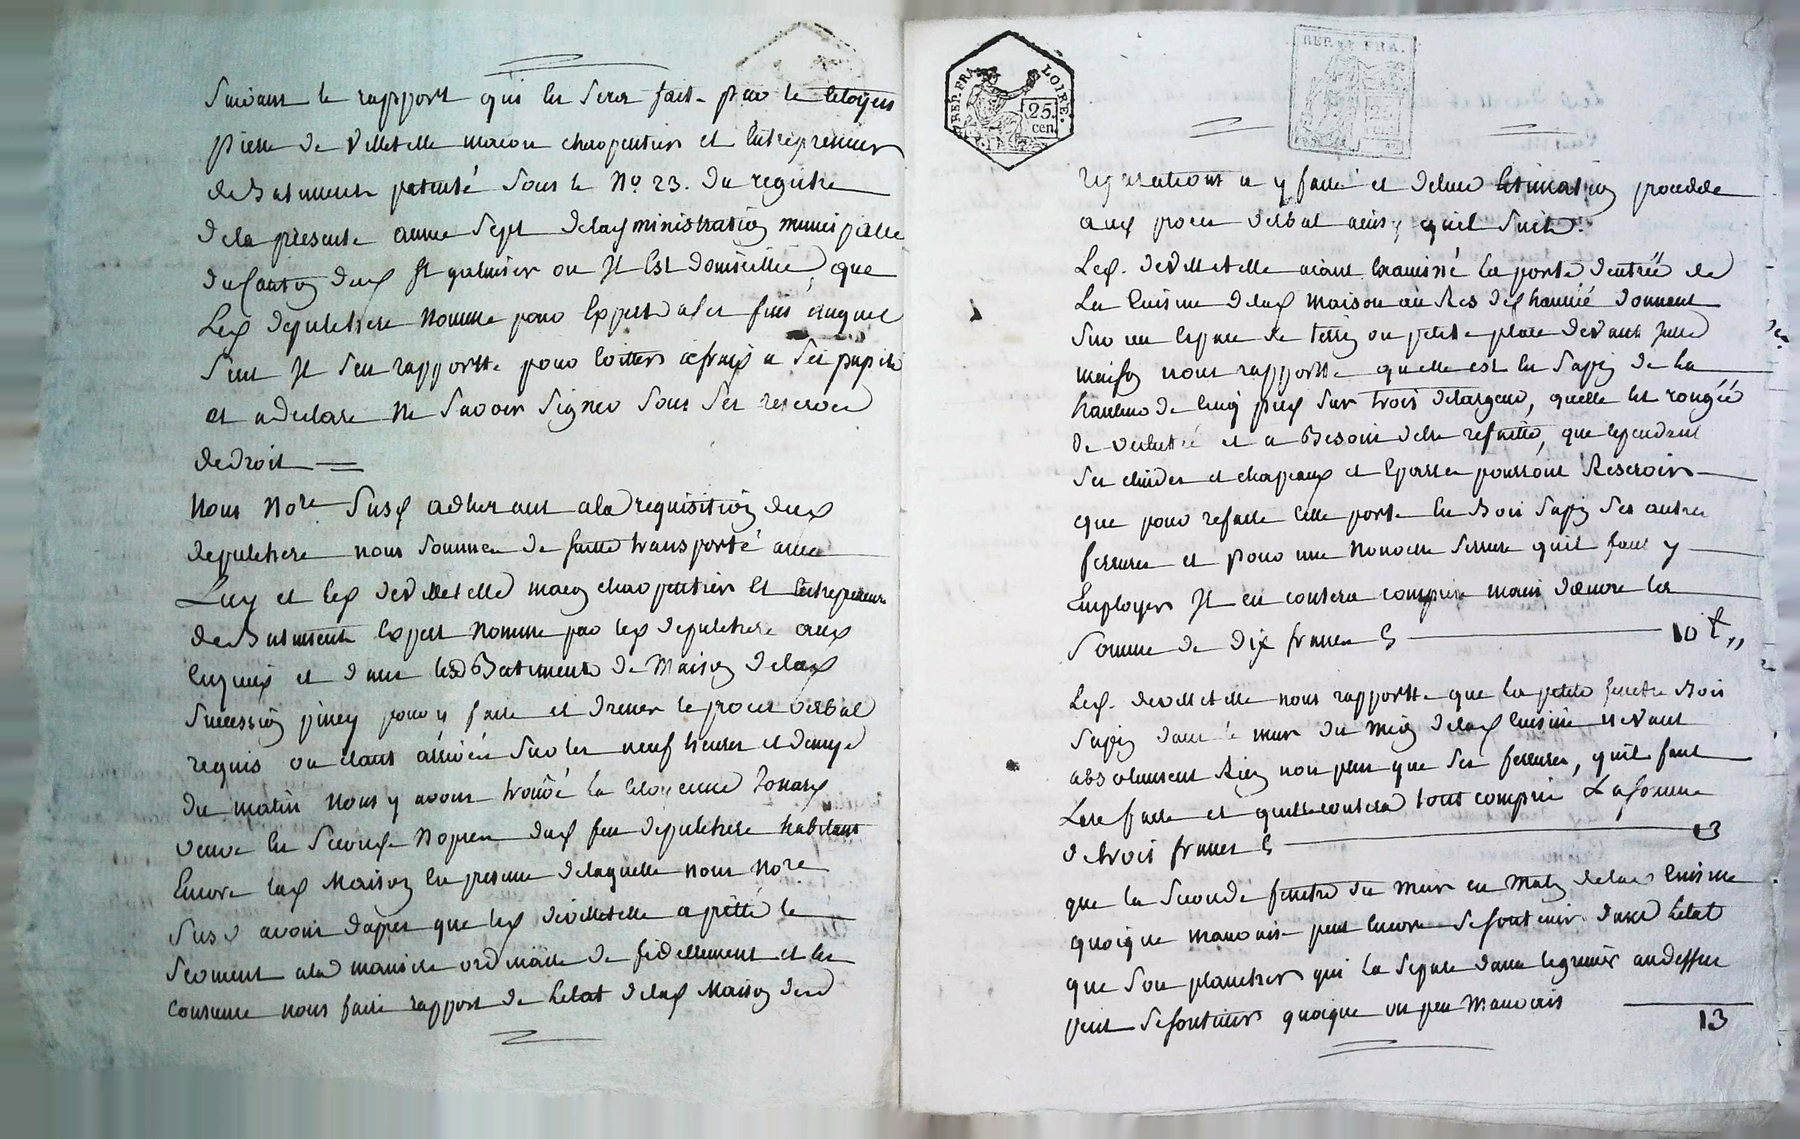 Suivant le rapport qui en sera fait par le Citoyen
pierre de villetelle macon charpentier et Entrepreneur
de Batiments patenté sous le No. 23. du registre
de la presente année sept delaministration municipalle
du Canton dud. St galmier ou Il Est Domicillié, que
Led. depulchere nomme pour Expert a ces fins auquel
Seul Il sen rapportte pour Eviter à fraix a ses pupils
et a declaré ne savoir signer sous ses reserves
de droit
nous Nore. Susd. adherant a la requisition dud.
depulchere nous sommes de suitte transporté avec
Luy et led. devilletelle macon charpentier Et Entrepreneur
de Batiments Expert nommé par led. depulchere aux
Enjeux et dans les Batiments de Maison delad.
Succession piney pour y faire et dresser le proces verbal
requis ou étant arrivés sur les neuf heures et demye
du matin nous y avons trouvé la Citoyenne
veuve En secondes nopces dud. feu depulchere habitant
Encore lad. Maison En presence delaquelle nous Nore.
Susd. avons dapres que led. devilletelle a prêtté le
Serment ala maniere ordinaire de fidellement et En
Consience nous faire rapport de Letat delad. Maison des
REP. FRA. LOIRE.
25. cen.
REP. FRA.
reparations a y faire et deleur Estimation procedde
aud. proces verbal ainsy quil suit.
Led. devilletelle aiant Examiné la porte dentrée de
La Cuisine delad. maison au Res de chaussée donnant
sur un Espace de terrin ou petite place devant ladte
maison nous rapportte quelle est En sapin de la
hauteur de cinq pieds sur trois delargeur, quelle Est rongée
de vetusté et a Besoin detre refaitte, que cependant
ses et chapeaux et Eparres pourront Reservir
que pour refaire Cette porte En Bois sapin ses autres
ferrures et pour une nouvelle serrure quil faut y
Employer Il en coutera compris main dœuvre La
somme de dix francs 10 ₶ "
Led. devilletelle nous rapportte que la petite fenetre Bois
sapin dans le mur du midy delad. Cuisine ne vaut
absolument Rien non plus que ses ferrures, quil faut
La refaire et quelle coutera tout compris La somme
de trois francs 3
que la seconde fenetre du mur en matin delad. Cuisine
quoique mauvaise peut Encore se soutenir dans Letat
que son plancher qui La separe dans le grenier audessus
peut se soutenir quoique un peu mauvais
13